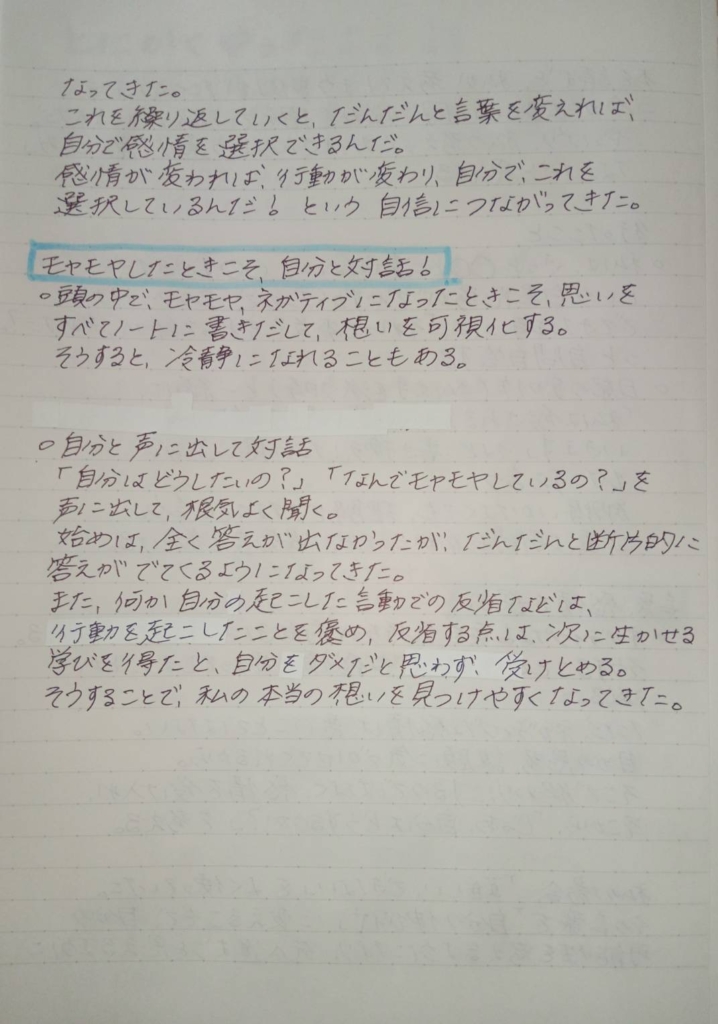 なってきた。
これを繰り返していくと、だんだんと言葉を変えれば、
自分で感情を選択できるんだ。
感情が変われば、行動が変わり、自分で、これを
選択しているんだ！という自信につながってきた。
モヤモヤしたときこそ、自分と対話！
○頭の中で、モヤモヤ、ネガティブになったときこそ、思いを
すべてノートに書きだして、想いを可視化する。
そうすると、冷静になれることもある。
○自分と声に出して対話
「自分はどうしたいの？」「なんでモヤモヤしているの？」を
声に出して、根気よく聞く。
始めは、全く答えが出なかったが、だんだんと断片的に
答えがでてくるようになってきた。
また、何か自分の起こした言動での反省などは、
行動を起こしたことを褒め、反省する点は、次に生かせる
学びを得たと、自分をダメだと思わず、受けとめる。
そうすることで、私の本当の想いを見つけやすくなってきた。